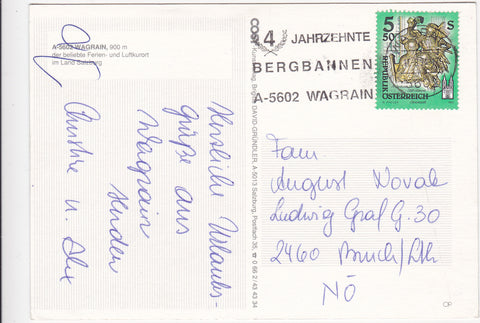 A-5602 WAGRAIN, 900 m
der beliebte Ferien- und Luftkurort
im Land Salzburg
Herzliche Urlaubs-
grüße aus
Wagrain
senden
Christine u.
4 JAHRZEHNTE
BERGBAHNEN
A-5602 WAGRAIN
5 50 S
REPUBLIK
ÖSTERREICH
DAVID-GRÜNDLER, A-5013 Salzburg, Postfach 35, 0 66 2/43 43 34
Fam.
August Novak
Ludwig Graf G. 30
2460 Bruch/Lth
NÖ
OP